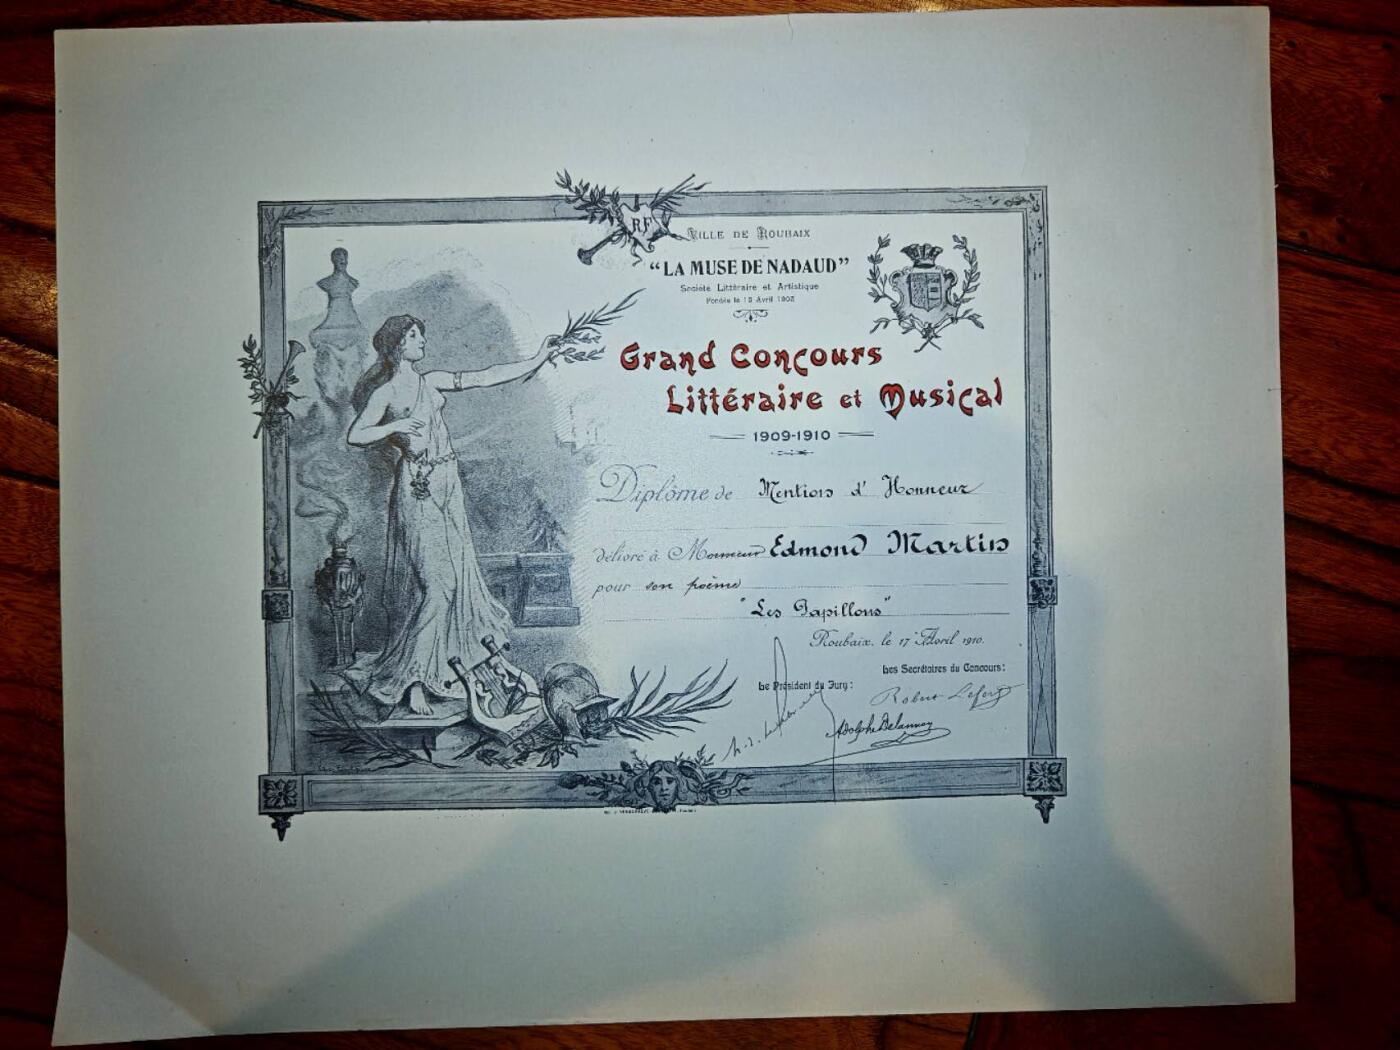 RF
VILLE DE ROUBAIX
"LA MUSE DE NADAUD"
Société Littéraire et Artistique
Fondée le 19 Avril 1903
Grand Concours
Littéraire et Musical
1909-1910
Diplôme de Mention d'Honneur
délivré à Monsieur Edmond Martin
pour son poème
"Les Papillons"
Roubaix, le 17 Avril 1910.
Les Secrétaires du Concours:
Le Président du Jury:
Adolphe Delannoy